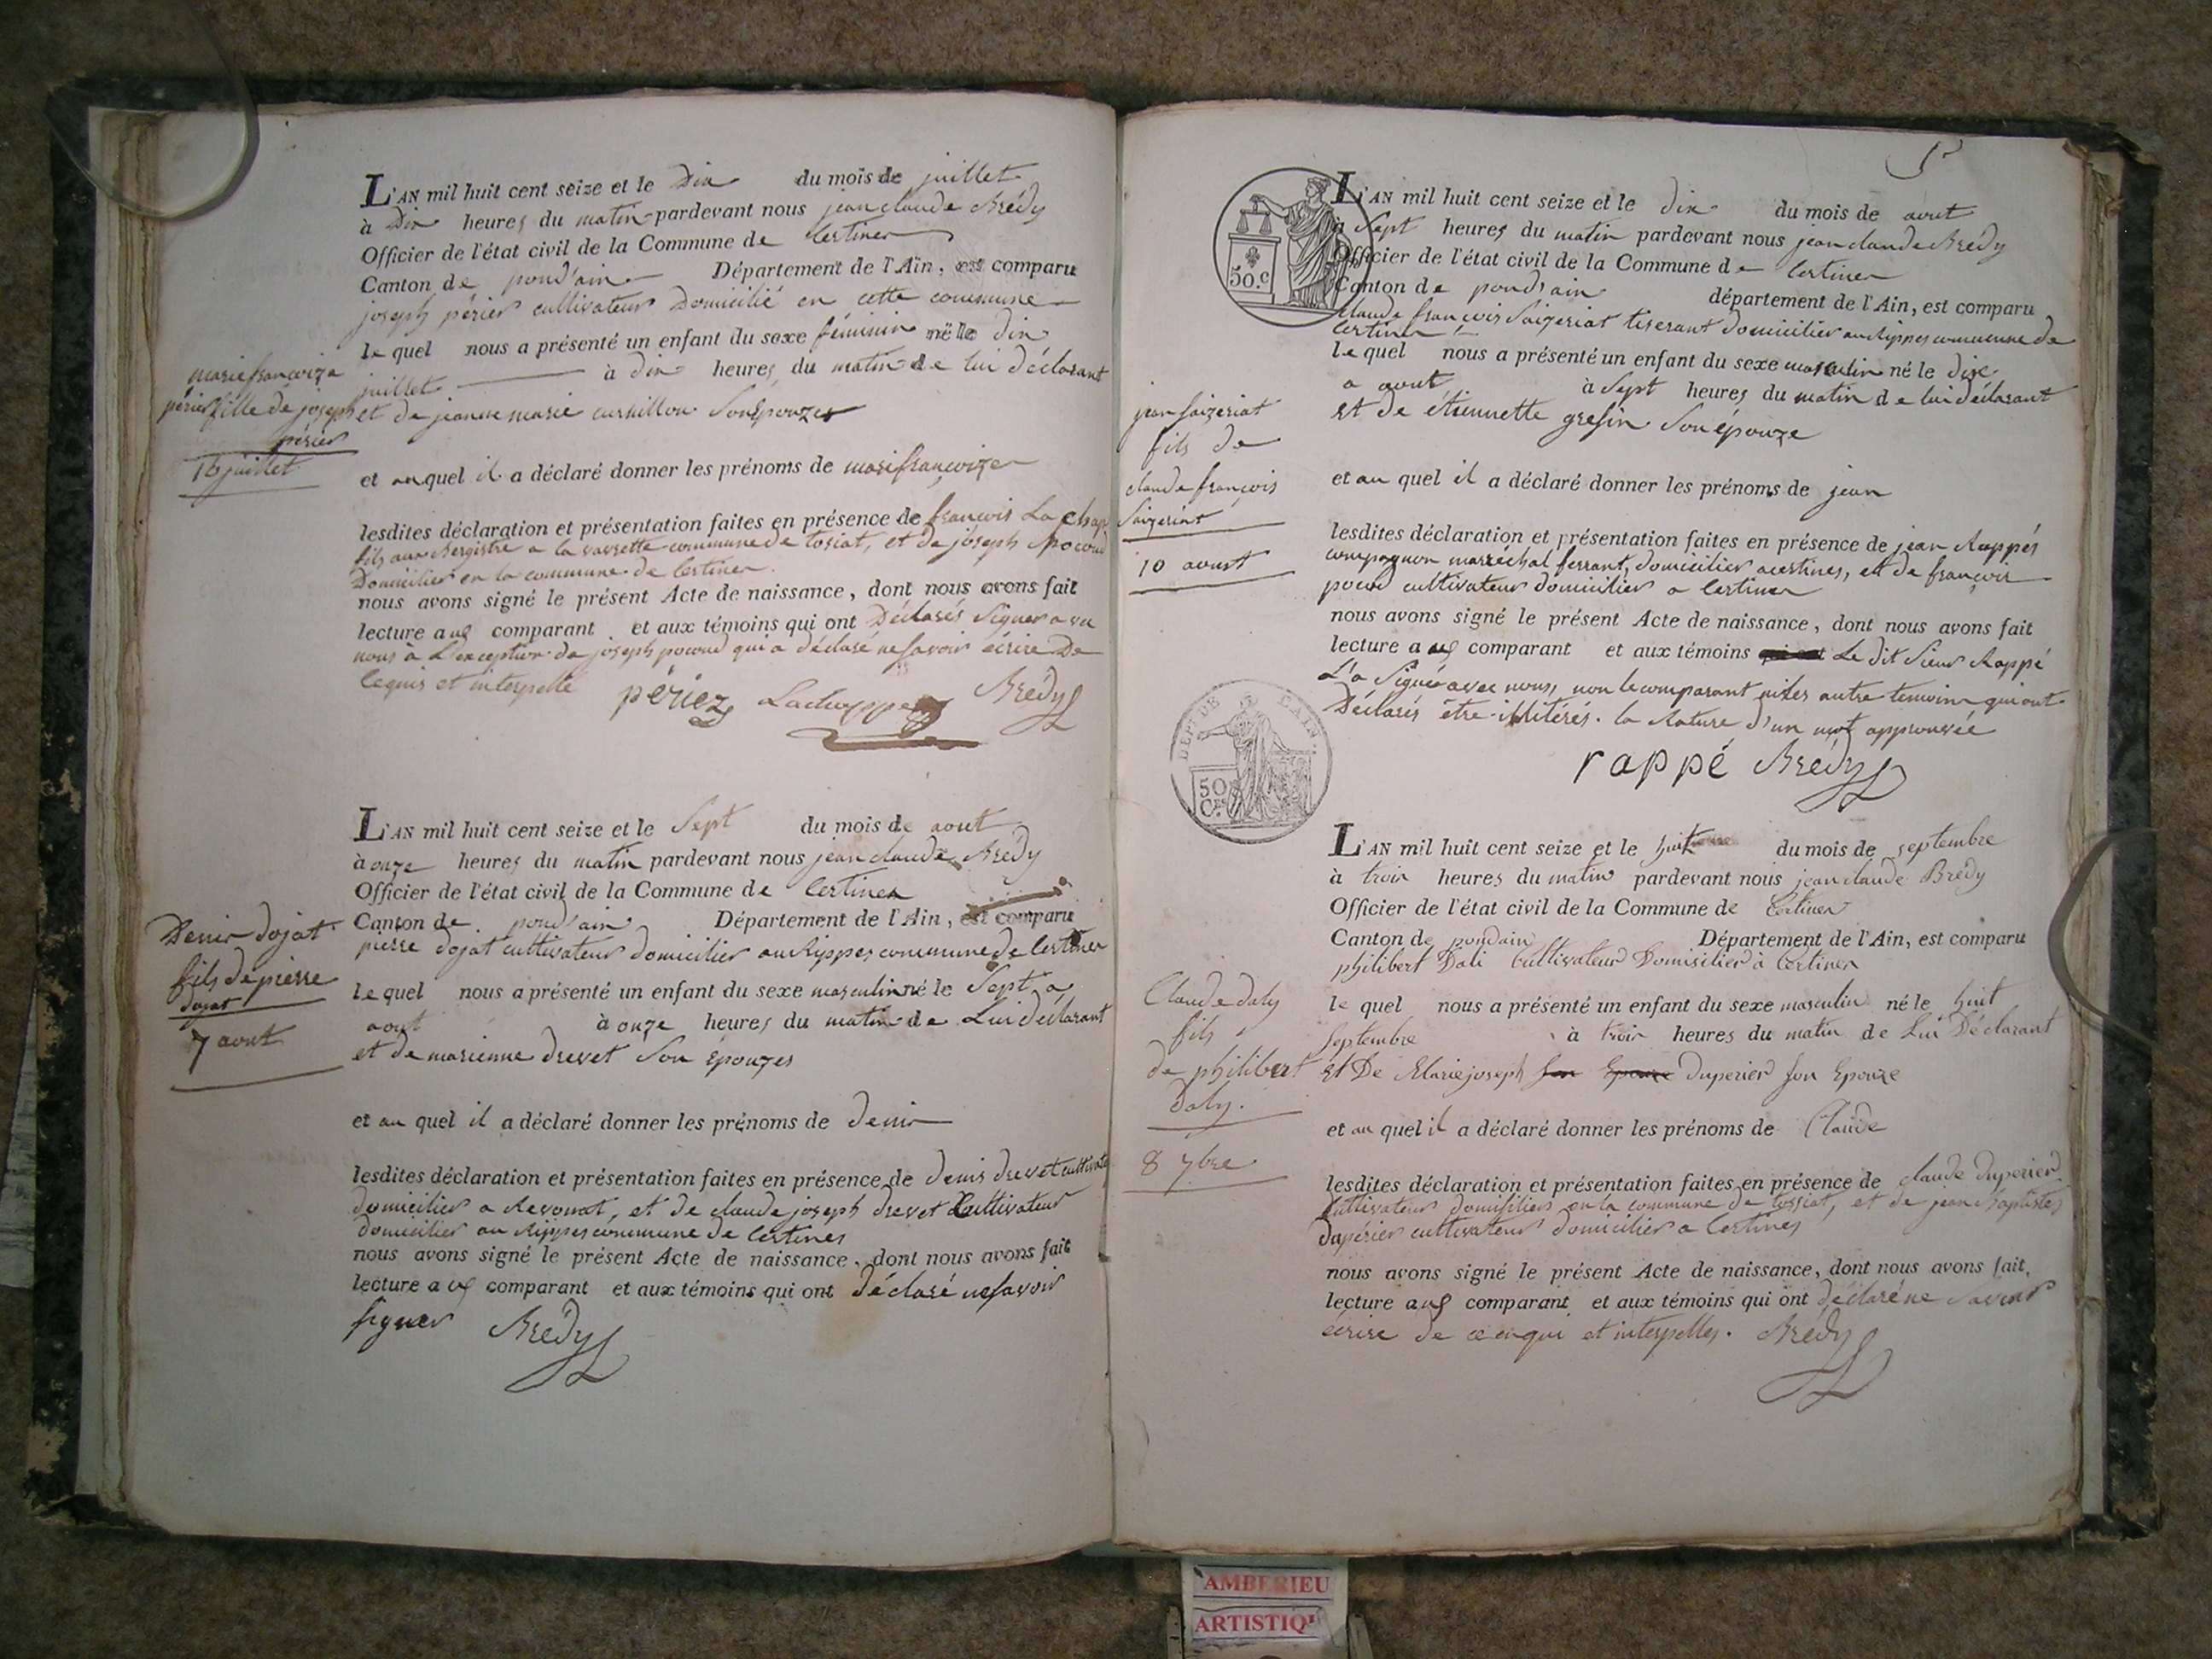 L'AN mil huit cent seize et le Dix du mois de juillet
à Dix heures du matin pardevant nous jean claude Brédy
Officier de l'état civil de la Commune de Certines
Canton de pond'ain Département de l'Ain, est comparu
joseph périer cultivateur Domicilié en cette commune
le quel nous a présenté un enfant du sexe féminin né le dix
juillet à dix heures du matin de lui déclarant
et de jeanne marie curnillon Son Epouze
et auquel il a déclaré donner les prénoms de marifrançoize
lesdites déclaration et présentation faites en présence de françois La chap
fils aux a la commune de tosiat, et de joseph pocoud
Domicilier en la commune de Certines
nous avons signé le présent Acte de naissance, dont nous avons fait
lecture aux comparant et aux témoins qui ont Déclarés Signer avec
nous à L'exception de joseph pocoud qui a déclaré ne savoir écrire De
ce quis et interpellé
périez Lachappe Brédy
mariefrancoize
périer fille de joseph
périer
16 juillet
L'AN mil huit cent seize et le Sept du mois de aout
à onze heures du matin pardevant nous jean claude Brédy
Officier de l'état civil de la Commune de Certines
Canton de pondain Département de l'Ain, est comparu
pierre dojat cultivateur domicilier au Rippes commune de Certines
le quel nous a présenté un enfant du sexe masculin né le Sept a
aout à onze heures du matin de Lui déclarant
et de marienne drevet Son Epouzes
et au quel il a déclaré donner les prénoms de denis
lesdites déclaration et présentation faites en présence de denis drevet cultivate
domicilier a Revonat, et de claude joseph drevet Cultivateur
domicilier au Rippes commune de Certines
nous avons signé le présent Acte de naissance, dont nous avons fait
lecture aux comparant et aux témoins qui ont déclaré ne savoir
signer Brédy
Denis dojat
fils de pierre
dojat
7 aout
L'AN mil huit cent seize et le dix du mois de aout
à Sept heures du matin pardevant nous jean claude Brédy
Officier de l'état civil de la Commune de Certines
Canton de pondsain département de l'Ain, est comparu
claude françois Saizeriat tiserant domicilier au Rippes commune de
Certines
le quel nous a présenté un enfant du sexe masculin né le dixe
a aout à Sept heures du matin de lui déclarant
et de étiennette gresin Son épouze
et au quel il a déclaré donner les prénoms de jean
lesdites déclaration et présentation faites en présence de jean Rappés
compagnon marréchal ferrant, domicilier a certines, et de françois
pocoud cultivateur domicilier a Certines
nous avons signé le présent Acte de naissance, dont nous avons fait
lecture aux comparant et aux témoins Le dit Sieur Rappé
L'a Signé avec nous, non le comparant autre temoin qui ont
Déclarés être illitérés. la Rature d'un mot approuvée
rappé Brédy
50.c
jean Saizeriat
fils de
claude françois
Saizeriat
10 aoust
DEPT DE L'AIN
50
Ces
L'AN mil huit cent seize et le huit du mois de septembre
à trois heures du matin pardevant nous jean claude Brédy
Officier de l'état civil de la Commune de Certines
Canton de pondain Département de l'Ain, est comparu
philibert Dali Cultivateur Domisilier à Certines
le quel nous a présenté un enfant du sexe masculin né le huit
septembre à trois heures du matin de Lui Déclarant
et De Mariejoseph son Epouze duperier son Epouze
et au quel il a déclaré donner les prénoms de Claude
lesdites déclaration et présentation faites en présence de claude duperier
Cultivateur domisilier en la commune de tossiat, et de jean Baptistes
dupérier cultivateur domicilier a Certines
nous avons signé le présent Acte de naissance, dont nous avons fait
lecture aux comparant et aux témoins qui ont déclaré ne savoir
écrire de ce enqui et interpelles. Brédy
Claude daly
fils
de philibert
daly.
8 7bre
AMBERIEU
ARTISTIQU